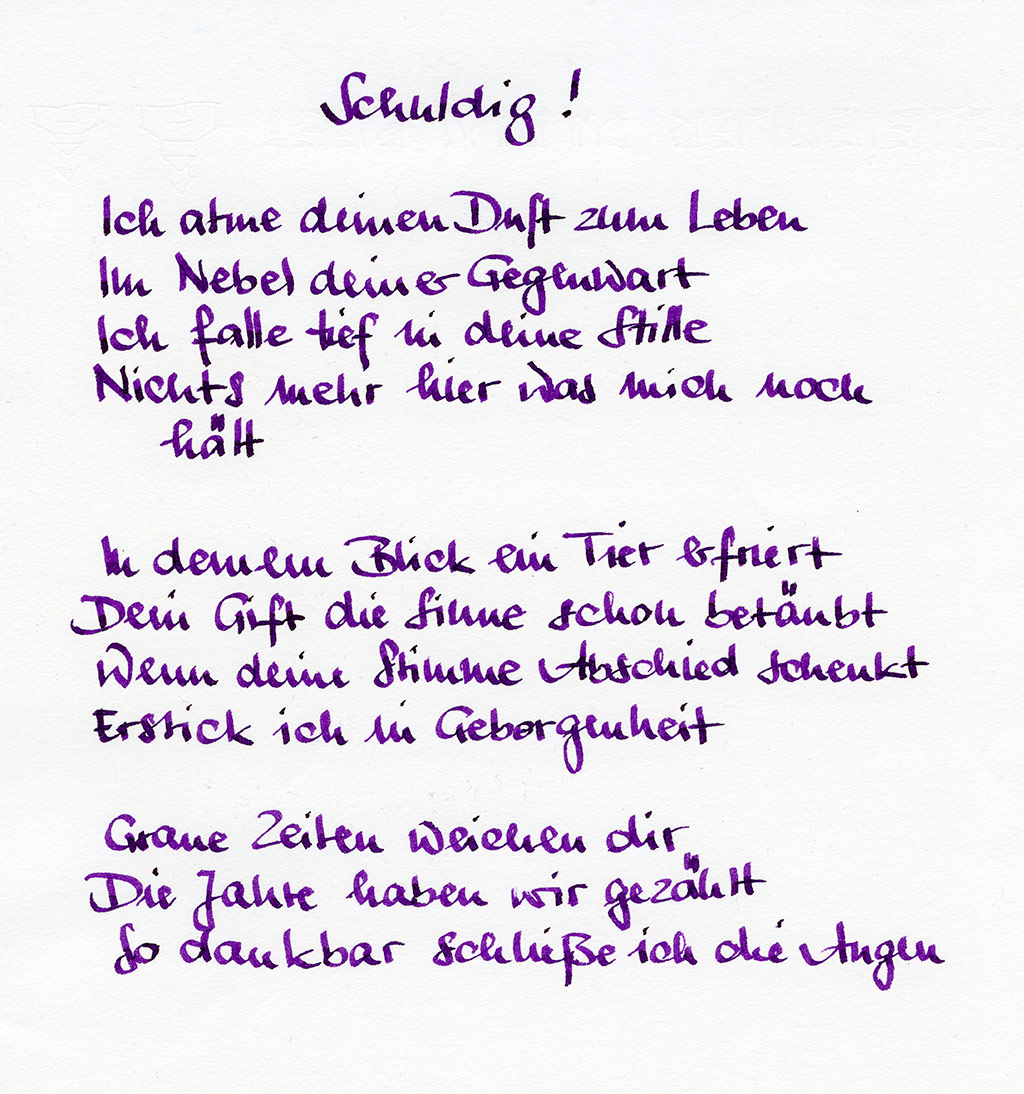 Schuldig !
Ich atme deinen Duft zum Leben
Im Nebel deiner Gegenwart
Ich falle tief in deine Stille
Nichts mehr hier was mich noch
hält
In deinem Blick ein Tier erfriert
Dein Gift die Sinne schon betäubt
Wenn deine Stimme Abschied schenkt
Erstick ich in Geborgenheit
Graue Zeiten weichen dir
Die Jahre haben wir gezählt
So dankbar schließe ich die Augen